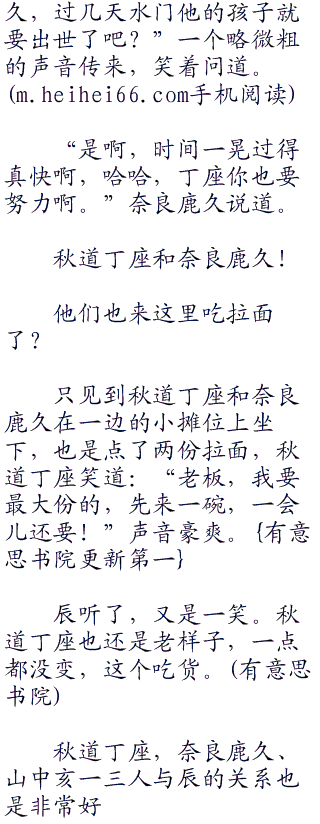 久，过几天水门他的孩子就
要出世了吧？”一个略微粗
的声音传来，笑着问道。
(m.heihei66.com手机阅读)
“是啊，时间一晃过得
真快啊，哈哈，丁座你也要
努力啊。”奈良鹿久说道。
秋道丁座和奈良鹿久！
他们也来这里吃拉面
了？
只见到秋道丁座和奈良
鹿久在一边的小摊位上坐
下，也是点了两份拉面，秋
道丁座笑道：“老板，我要
最大份的，先来一碗，一会
儿还要！”声音豪爽。{有意
思书院更新第一}
辰听了，又是一笑。秋
道丁座也还是老样子，一点
都没变，这个吃货。(有意思
书院)
秋道丁座，奈良鹿久、
山中亥一三人与辰的关系也
是非常好